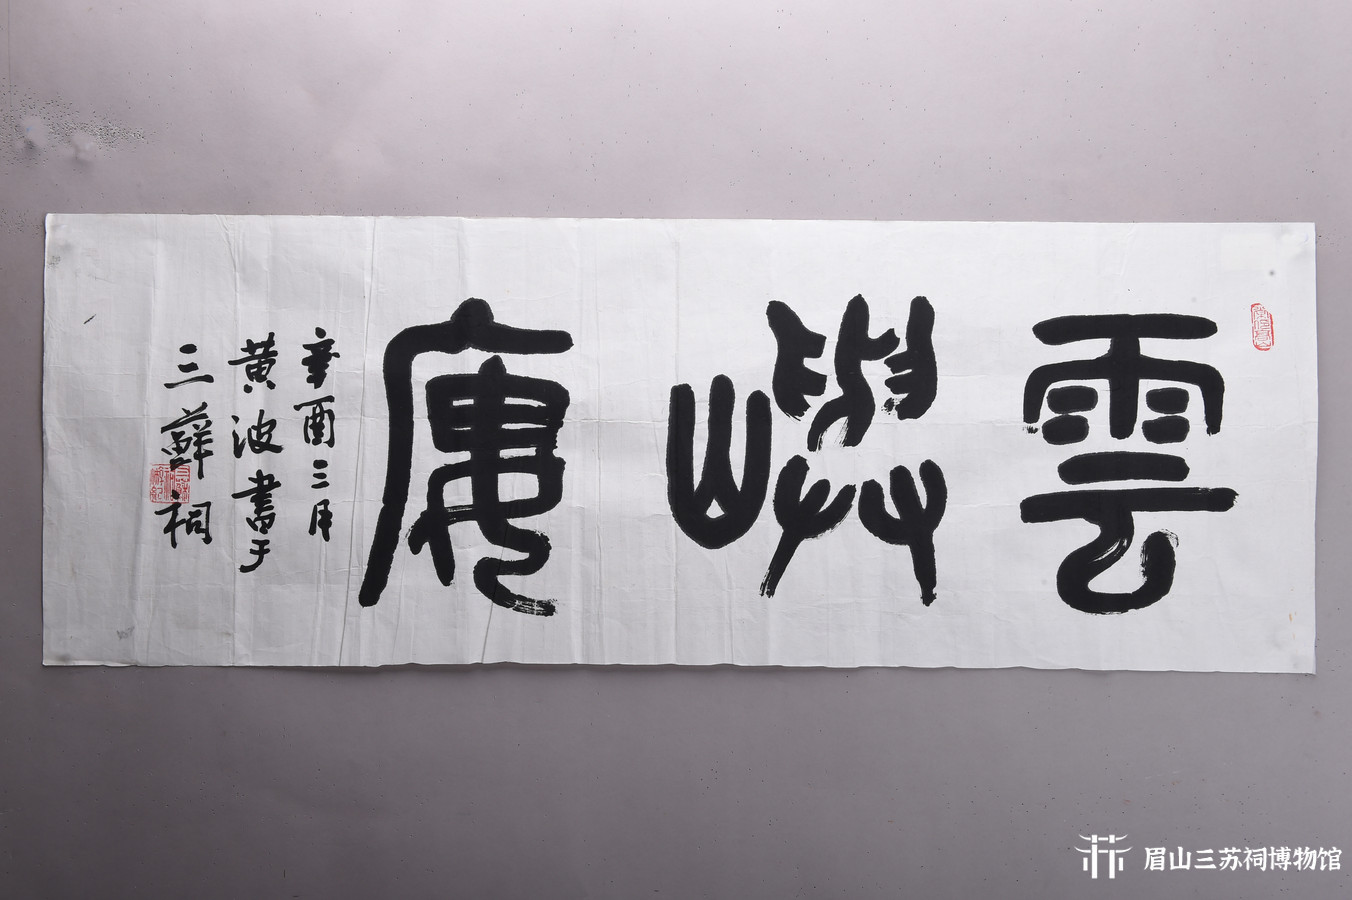 雲嶼廔
辛酉三月
黄波書于
三蘇祠
眉山三苏祠博物馆